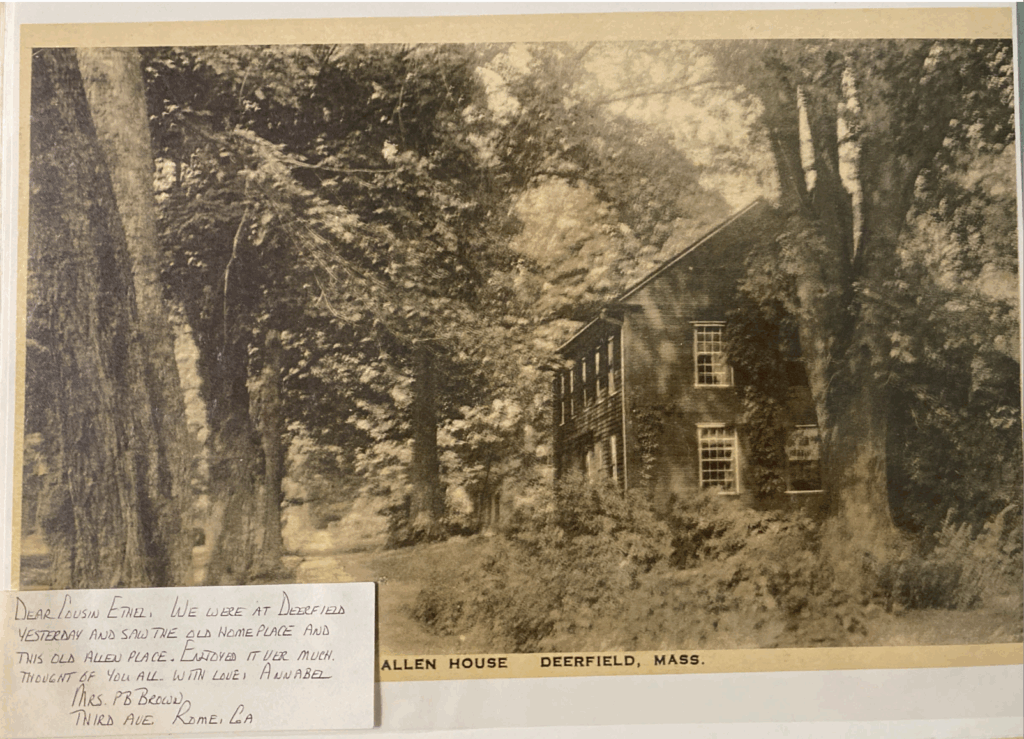 ALLEN HOUSE DEERFIELD, MASS.
DEAR COUSIN ETHEL, WE WERE AT DEERFIELD
YESTERDAY AND SAW THE OLD HOME PLACE AND
THIS OLD ALLEN PLACE. ENJOYED IT VER MUCH.
THOUGHT OF YOU ALL. WITH LOVE, ANNABEL
MRS. PB BROWN
THIRD AVE ROME, GA